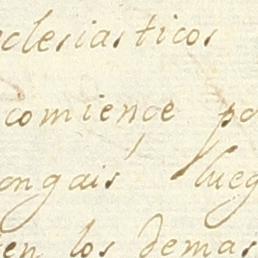 clesiasticos
comience po
ongais lueg
en los demas